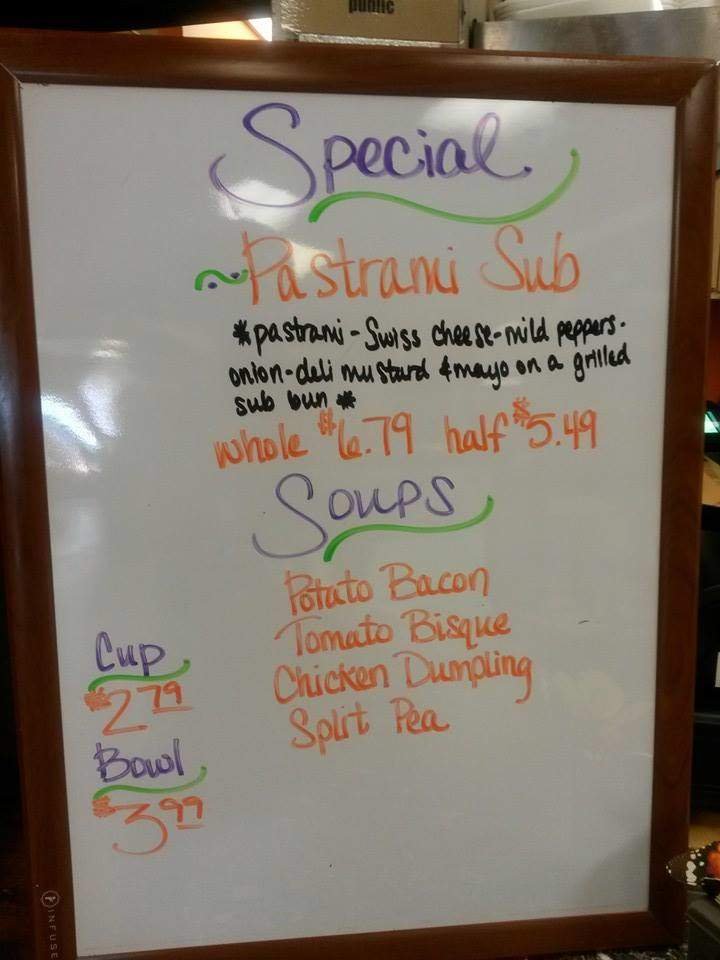 public
Special
~Pastrami Sub
*pastrami - Swiss cheese - mild peppers -
onion - deli mustard & mayo on a grilled
sub bun *
whole $6.79 half $5.49
Soups
Potato Bacon
Tomato Bisque
Chicken Dumpling
Split Pea
Cup
$2.79
Bowl
$3.99
INFUSE